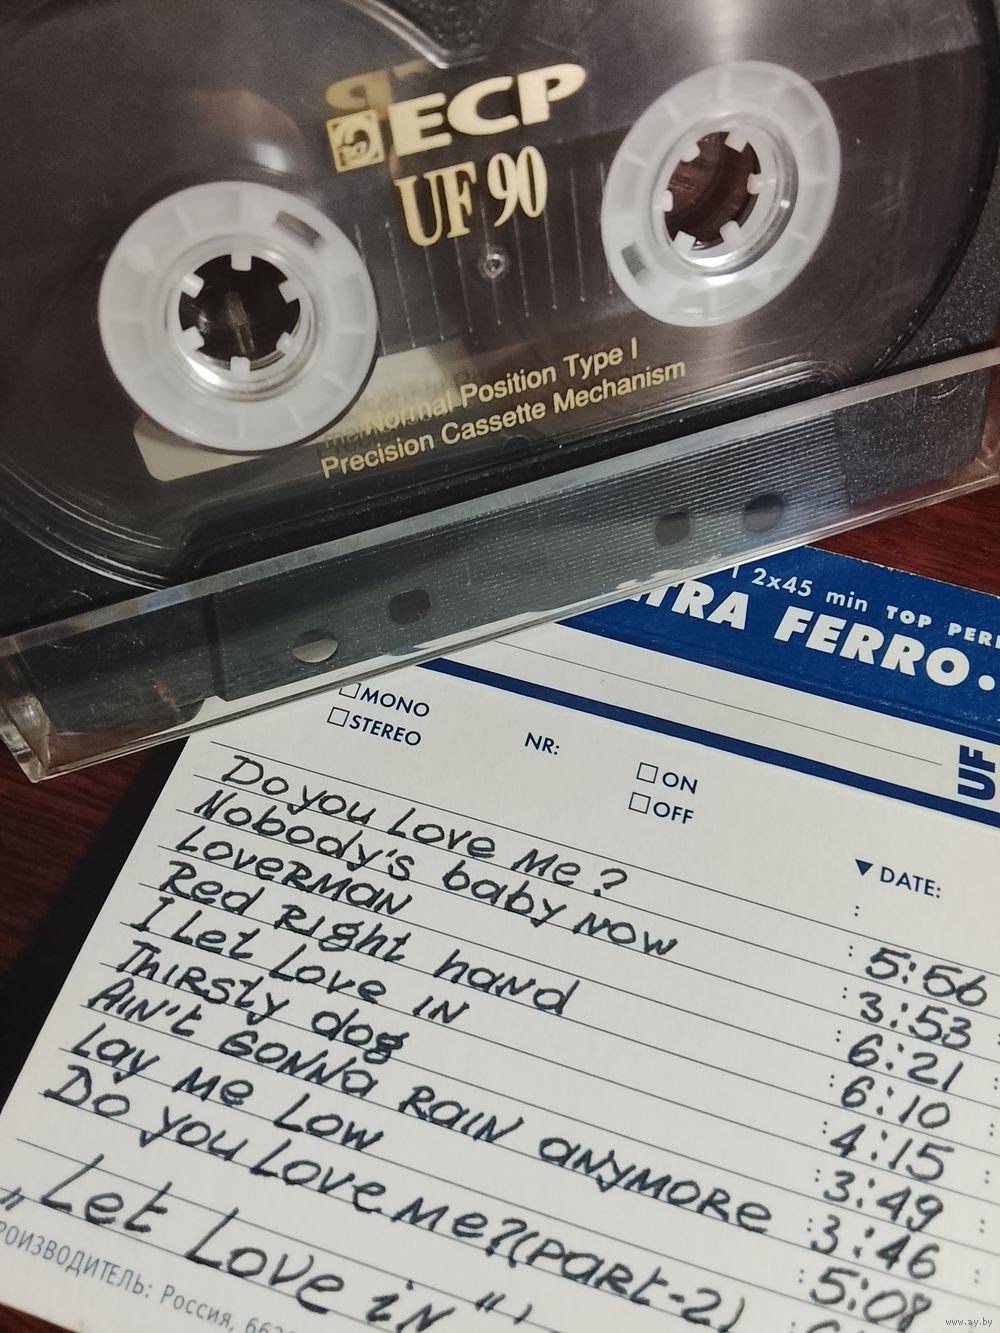 ECP
UF 90
Normal Position Type I
Precision Cassette Mechanism
2x45 min TOP
FERRO.
UF
MONO
STEREO
NR:
ON
OFF
DATE:
Do you Love Me? 5:56
Nobody's baby now 3:53
Loverman 6:21
Red Right hand 6:10
I Let Love in 4:15
Thirsty dog 3:49
Ain't gonna rain anymore 3:46
Lay Me Low 5:08
Do you Love me? (part-2)
„Let Love in“,
Россия,
www.ay.by